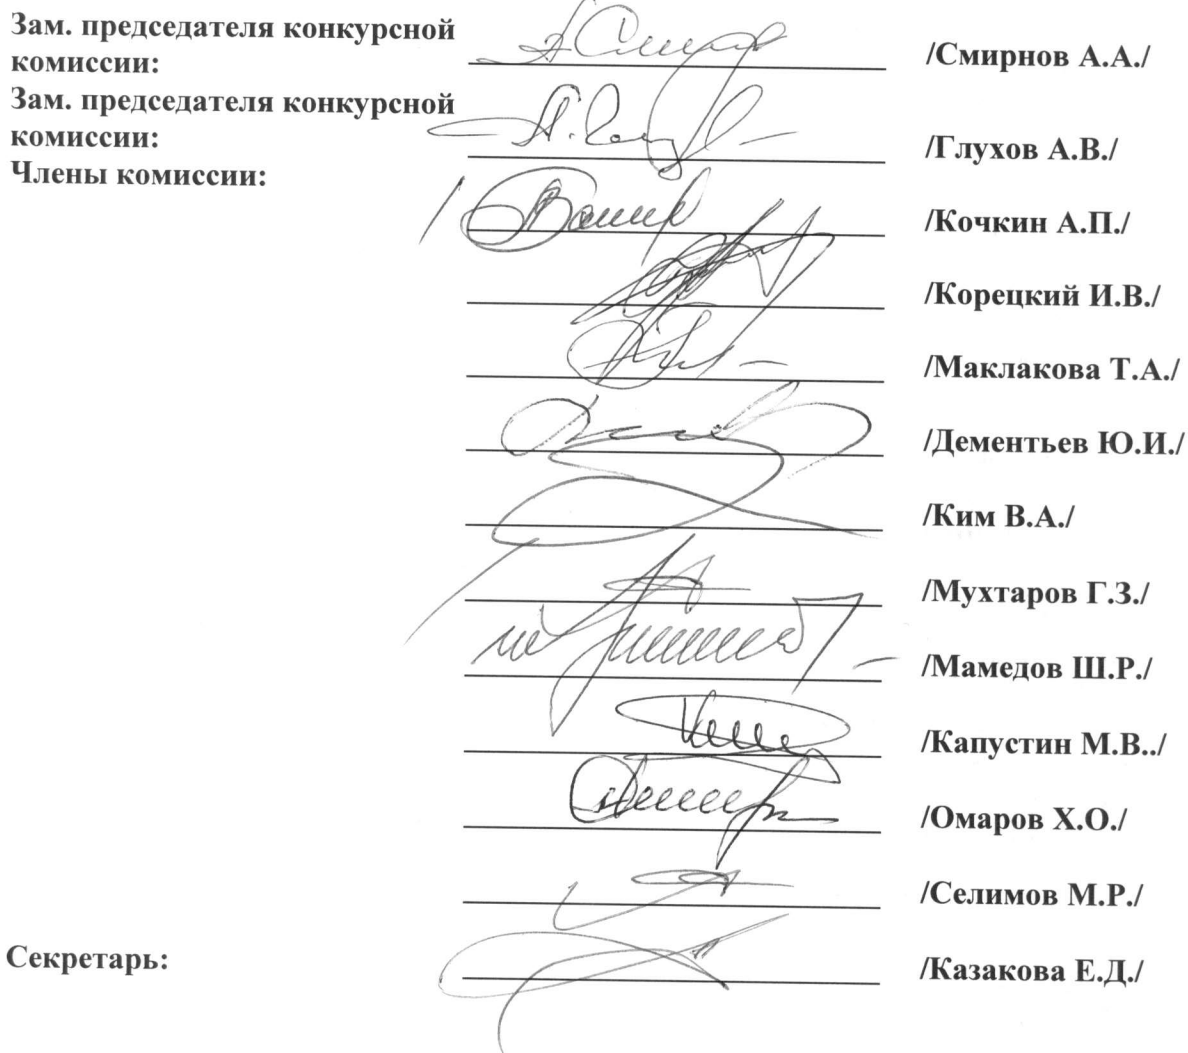 Зам. председателя конкурсной
комиссии: /Смирнов А.А./
Зам. председателя конкурсной
комиссии: /Глухов А.В./
Члены комиссии:
/Кочкин А.П./
/Корецкий И.В./
/Маклакова Т.А./
/Дементьев Ю.И./
/Ким В.А./
/Мухтаров Г.З./
/Мамедов Ш.Р./
/Капустин М.В../
/Омаров Х.О./
/Селимов М.Р./
Секретарь: /Казакова Е.Д./